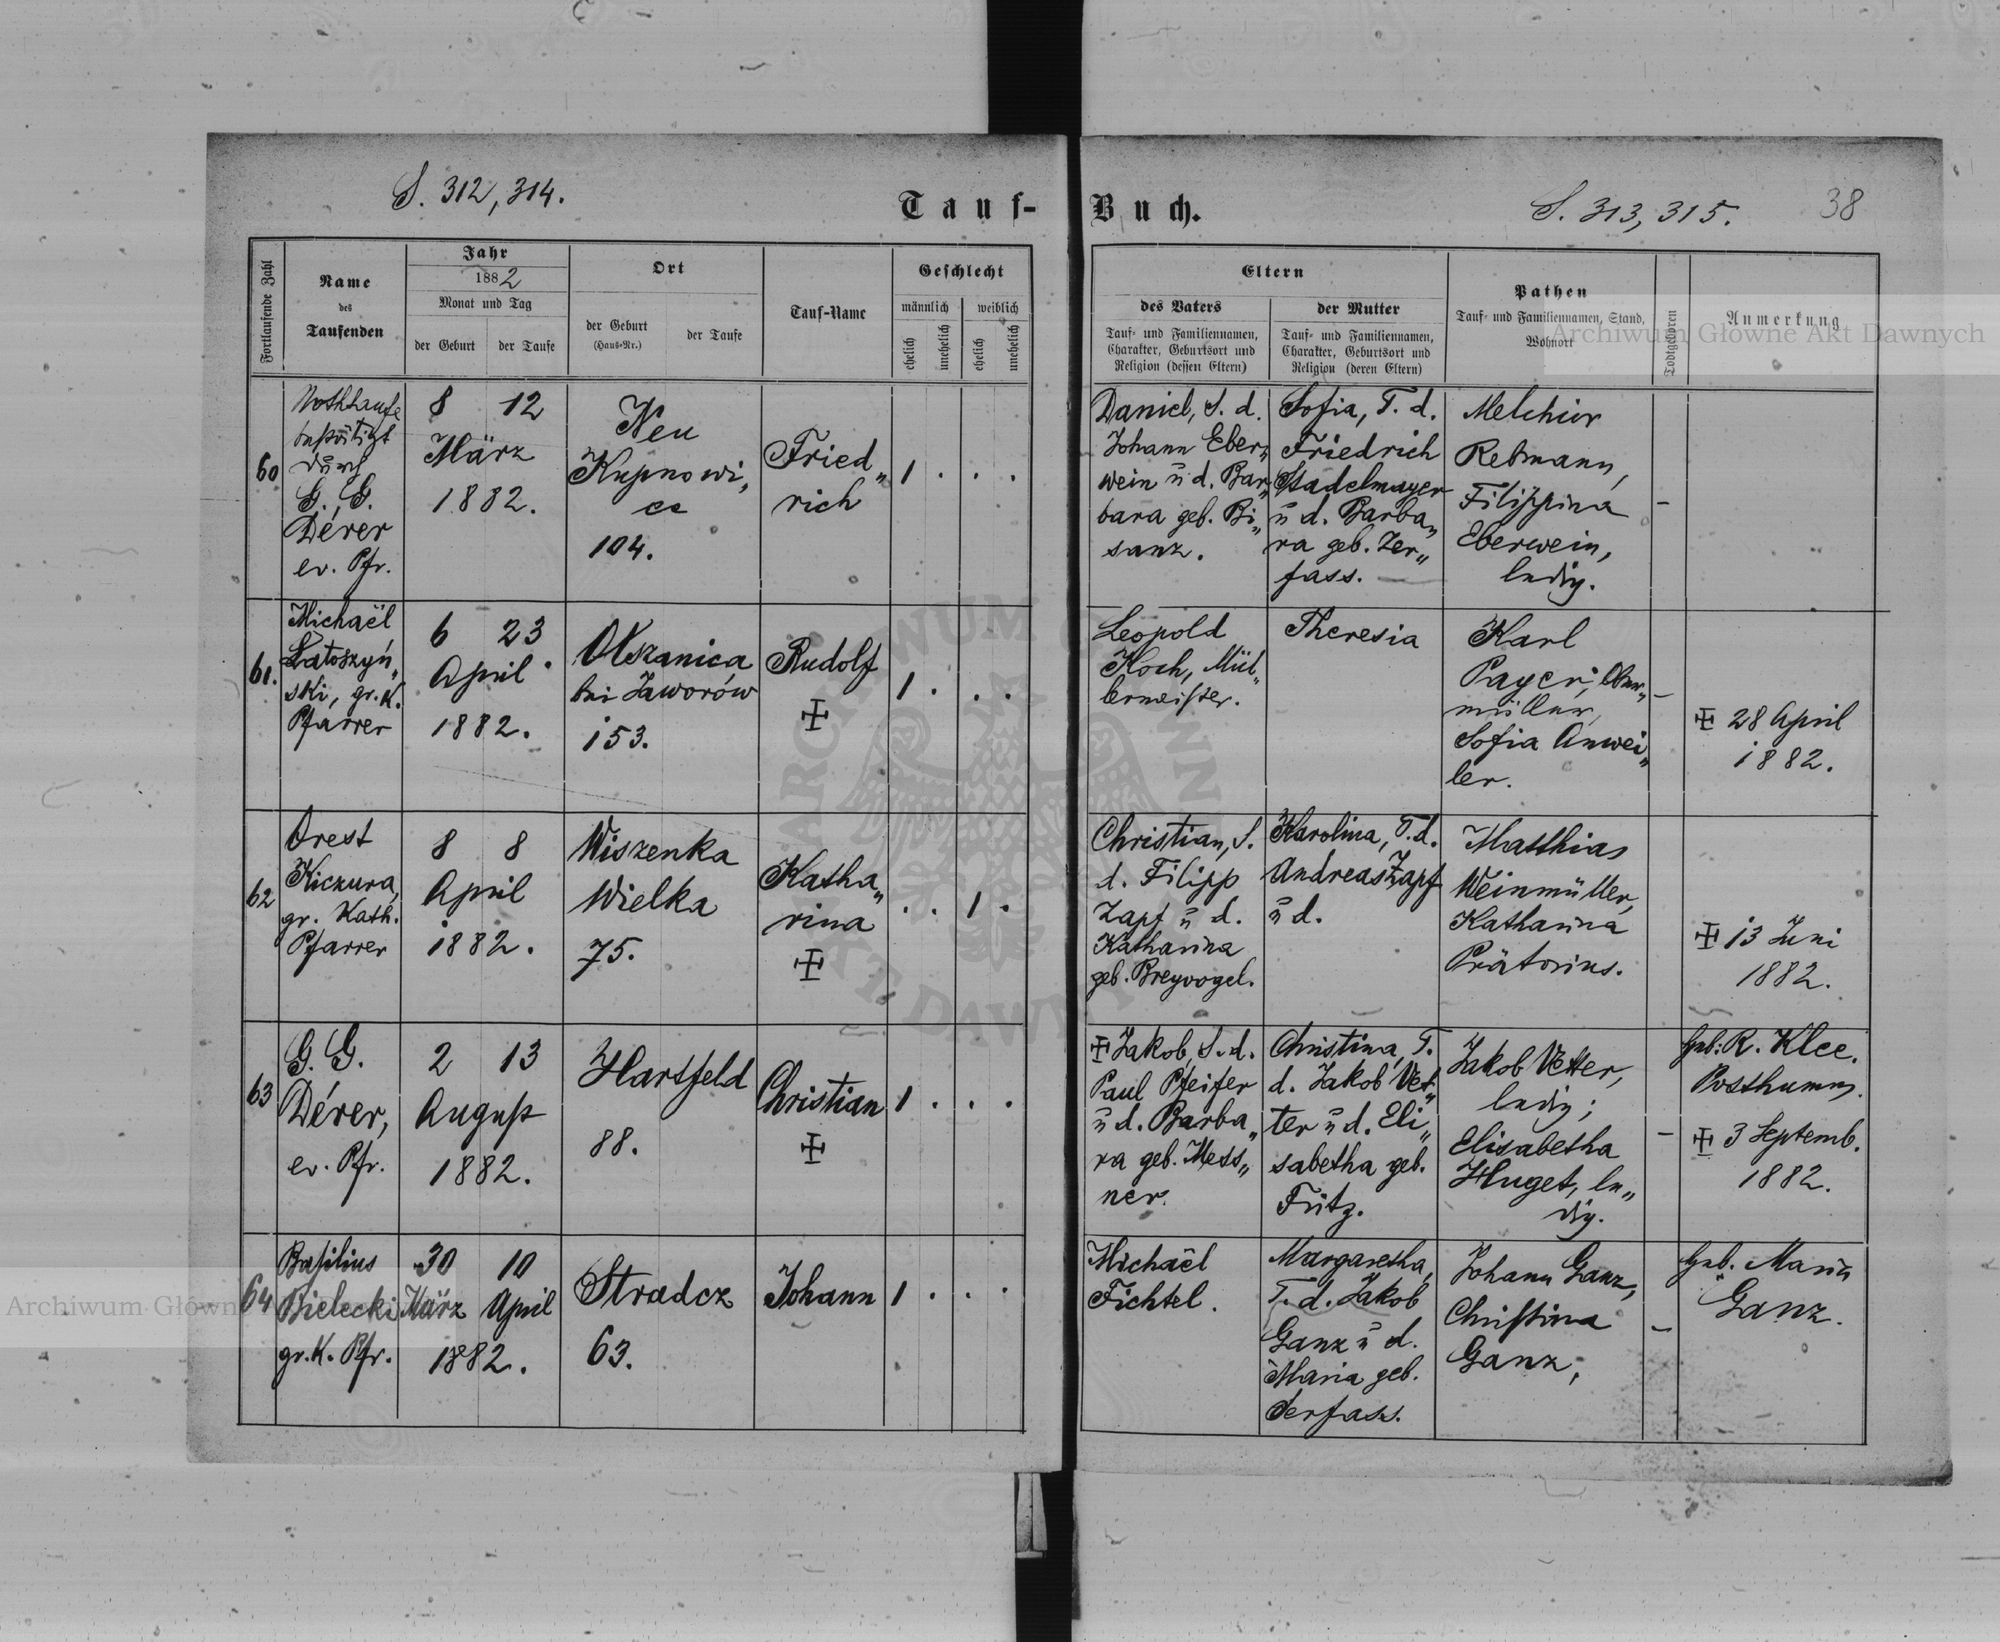 S. 312, 314.
Tauf-
Buch.
S. 313, 315.
38
Fortlaufende Zahl
Name
des
Taufenden
Jahr
1882
Monat und Tag
der Geburt
der Taufe
Ort
der Geburt
(Haus-Nr.)
der Taufe
Tauf-Name
Geschlecht
männlich
weiblich
ehelich
unehelich
ehelich
unehelich
Eltern
des Vaters
Tauf- und Familiennamen,
Charakter, Geburtsort und
Religion (dessen Eltern)
der Mutter
Tauf- und Familiennamen,
Charakter, Geburtsort und
Religion (deren Eltern)
Pathen
Tauf- und Familiennamen, Stand,
Wohnort
Todtgeboren
Anmerkung
60
Nothtaufe
bestätigt
durch
G. G.
Dérer
ev. Pfr.
8 12
März
1882.
Neu
Kupnowi„
ce
104.
Fried„
rich
1 . . .
Daniel, S. d.
Johann Eber„
wein ŭ d. Bar„
bara geb. Bi„
sanz.
Sofia, T. d.
Friedrich
Stadelmayer
ŭ d. Barba„
ra geb. Zer„
fass.
Melchior
Rebmann,
Filippina
Eberwein,
ledig.
–
61.
Michaël
Łatoszyń„
ski, gr. K.
Pfarrer
6 23
April
1882.
Olszanica
bei Jaworów
153.
Rudolf
☩
1 . . .
Leopold
Koch, Mül„
lermeister.
Theresia
Karl
Payer, Ober„
müller,
Sofia Anwei„
ler.
–
☩ 28 April
1882.
62
Orest
Kiczura,
gr. Kath.
Pfarrer
8 8
April
1882.
Wiszenka
Wielka
75.
Katha„
rina
☩
. . 1 .
Christian, S.
d. Filipp
Zapf ŭ d.
Katharina
geb. Breyvogel.
Karolina, T. d.
Andreas Zapf
ŭ d.
Matthias
Weinmüller,
Katharina
Prätorius.
☩ 13 Juni
1882.
63
G. G.
Dérer,
ev. Pfr.
2 13
August
1882.
Hartfeld
88.
Christian
☩
1 . . .
☩ Jakob, S. d.
Paul Pfeifer
ŭ d. Barba„
ra geb. Mess„
ner.
Christina, T.
d. Jakob Vet„
ter ŭ d. Eli„
sabetha geb.
Fütz.
Jakob Vetter,
ledig;
Elisabetha
Huget, le„
dig.
–
Heb: R. Klee.
Posthumus.
☩ 3 Septemb.
1882.
64
Basilius
Bielecki
gr. K. Pfr.
30 10
März April
1882.
Stradcz
63.
Johann
1 . . .
Michaël
Fichtel.
Margaretha,
T. d. Jakob
Ganz ŭ d.
Maria geb.
Serfass.
Johann Ganz,
Christina
Ganz,
–
Heb. Maria
Ganz.
Archiwum Główne Akt Dawnych
Archiwum Główn
ARCHIWUM
AKT DAWNY